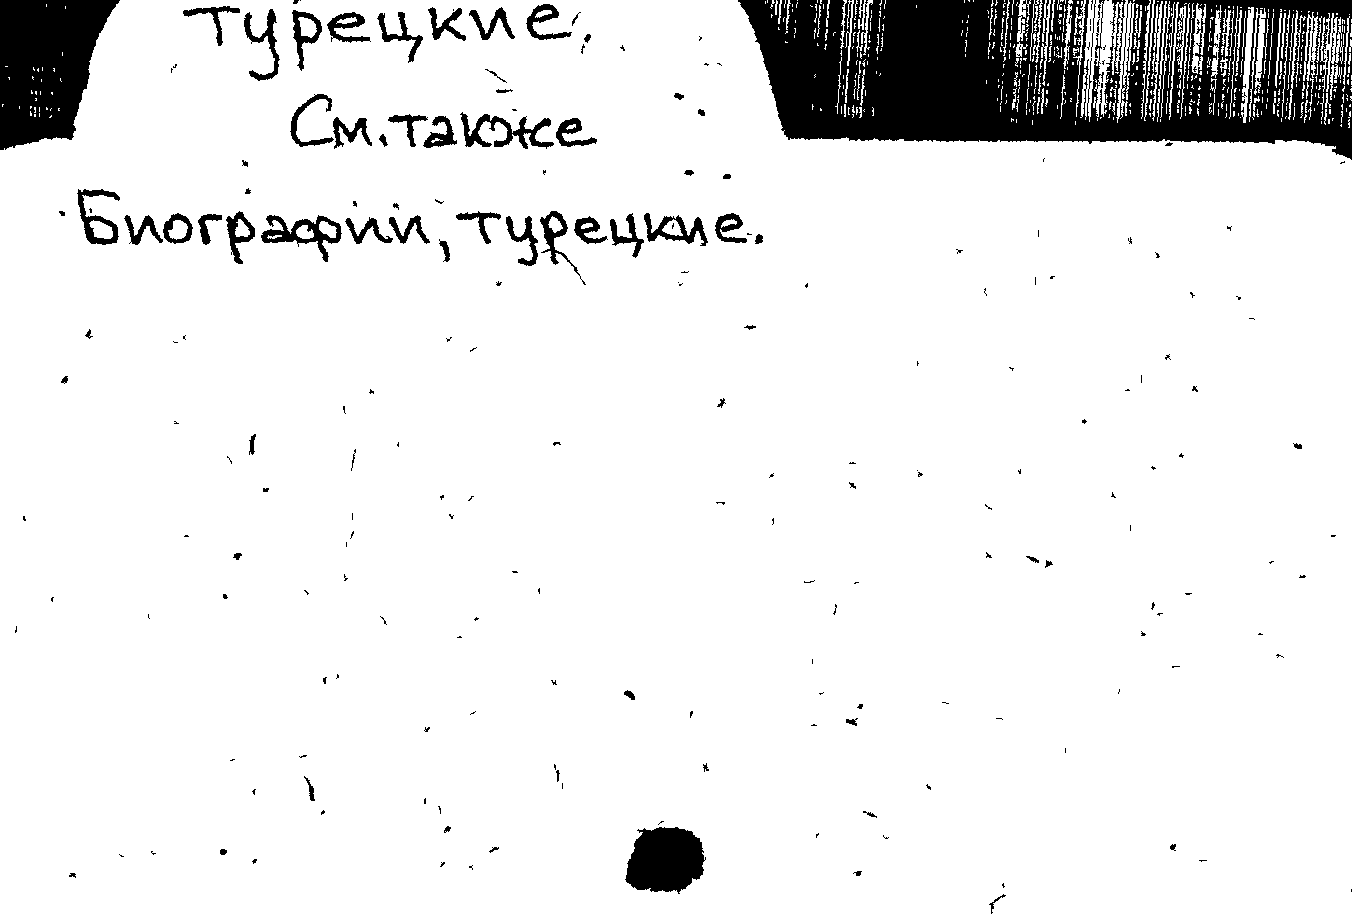 турецкие.
См. также
Биографии, турецкие.